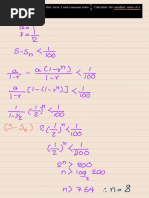 first term 1 and common ratio 1/2 Calculate the smallest value of n
r = 1/2
S-Sn < 1/100
a/1-r - a(1-rⁿ)/1-r < 1/100
a/1-r [1-(1-rⁿ)] < 1/100
1/1-1/2 (1/2)ⁿ < 1/100
(S-Sn) 2(1/2)ⁿ < 1/100
(1/2)ⁿ < 1/200
2ⁿ > 200
n > log₂ 200
n > 7.64 ∴ n = 8